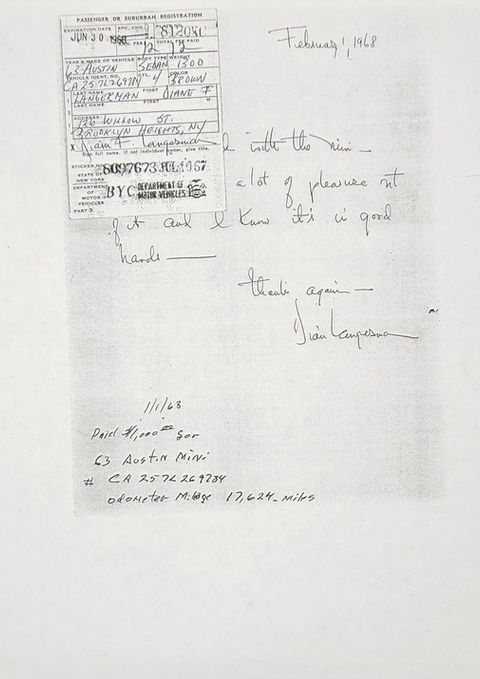 PASSENGER OR SUBURBAN REGISTRATION
EXPIRATION DATE
JUN 30 1968
TOTAL FEE PAID
12 12
YEAR & MAKE OF VEHICLE BODY TYPE WEIGHT
63 AUSTIN SEDAN 1300
VEHICLE IDENT. NO. CYL. COLOR
4 BROWN
LAST NAME FIRST
LANGERMAN DIANE F
LAST NAME FIRST M
ADDRESS
126 WILLOW ST.
BROOKLYN HEIGHTS, NY
X
Sign full name, if not individual owner, give title.
STICKER
6097673 JUL 10 67
STATE OF
NEW YORK
DEPARTMENT
OF
MOTOR
VEHICLES
BYC DEPARTMENT OF
MOTOR VEHICLES
PART 3
February 1, 1968
with the mini —
a lot of pleasure
of it and I know it's in good
hands —
Thanks again —
1/1/68
Paid $1,000.00 for
63 Austin Mini
# CA 257L 269734
odometer Milage 17,624 miles